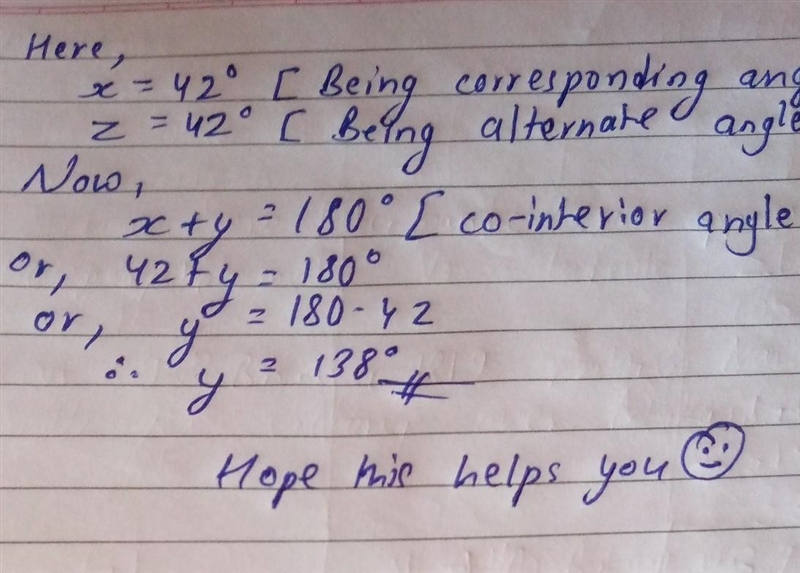 Here,
x = 42° [ Being corresponding ang
z = 42° [ Being alternate angle
Now,
x + y = 180° [ co-interior angle
or, 42 + y = 180°
or, y = 180 - 42
∴ y = 138°
Hope this helps you